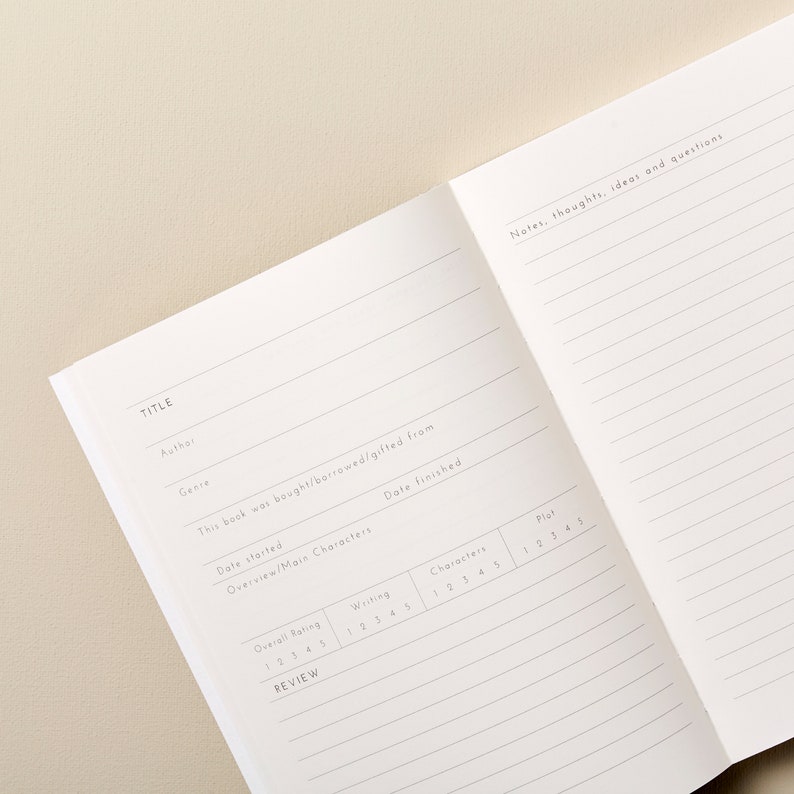 TITLE
Author
Genre
This book was bought/borrowed/gifted from
Date started Date finished
Overview/Main Characters
Overall Rating Writing Characters Plot
1 2 3 4 5 1 2 3 4 5 1 2 3 4 5 1 2 3 4 5
REVIEW
Notes, thoughts, ideas and questions